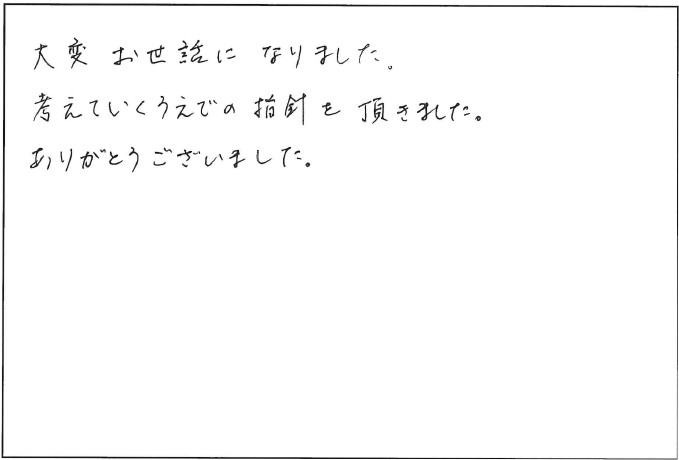 大変お世話になりました。
考えていくうえでの指針を頂きました。
ありがとうございました。